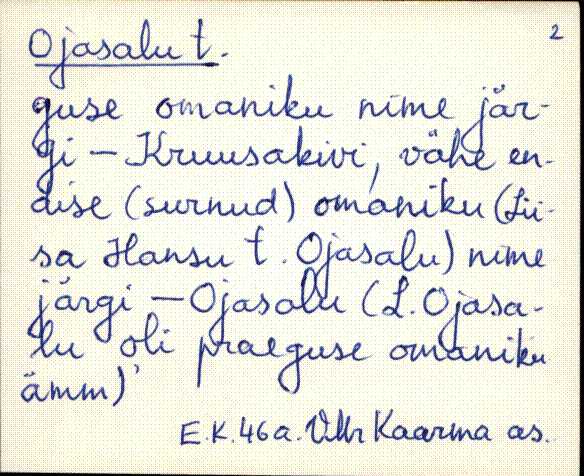 2
Ojasalu t.
guse omaniku nime jär-
gi – Kruusakivi, vähe en-
dise (surnud) omaniku (Lii-
sa Hansu t. Ojasalu) nime
järgi – Ojasalu (L. Ojasa-
lu oli praeguse omaniku
ämm)'
E.K. 46 a. Kaarma as.